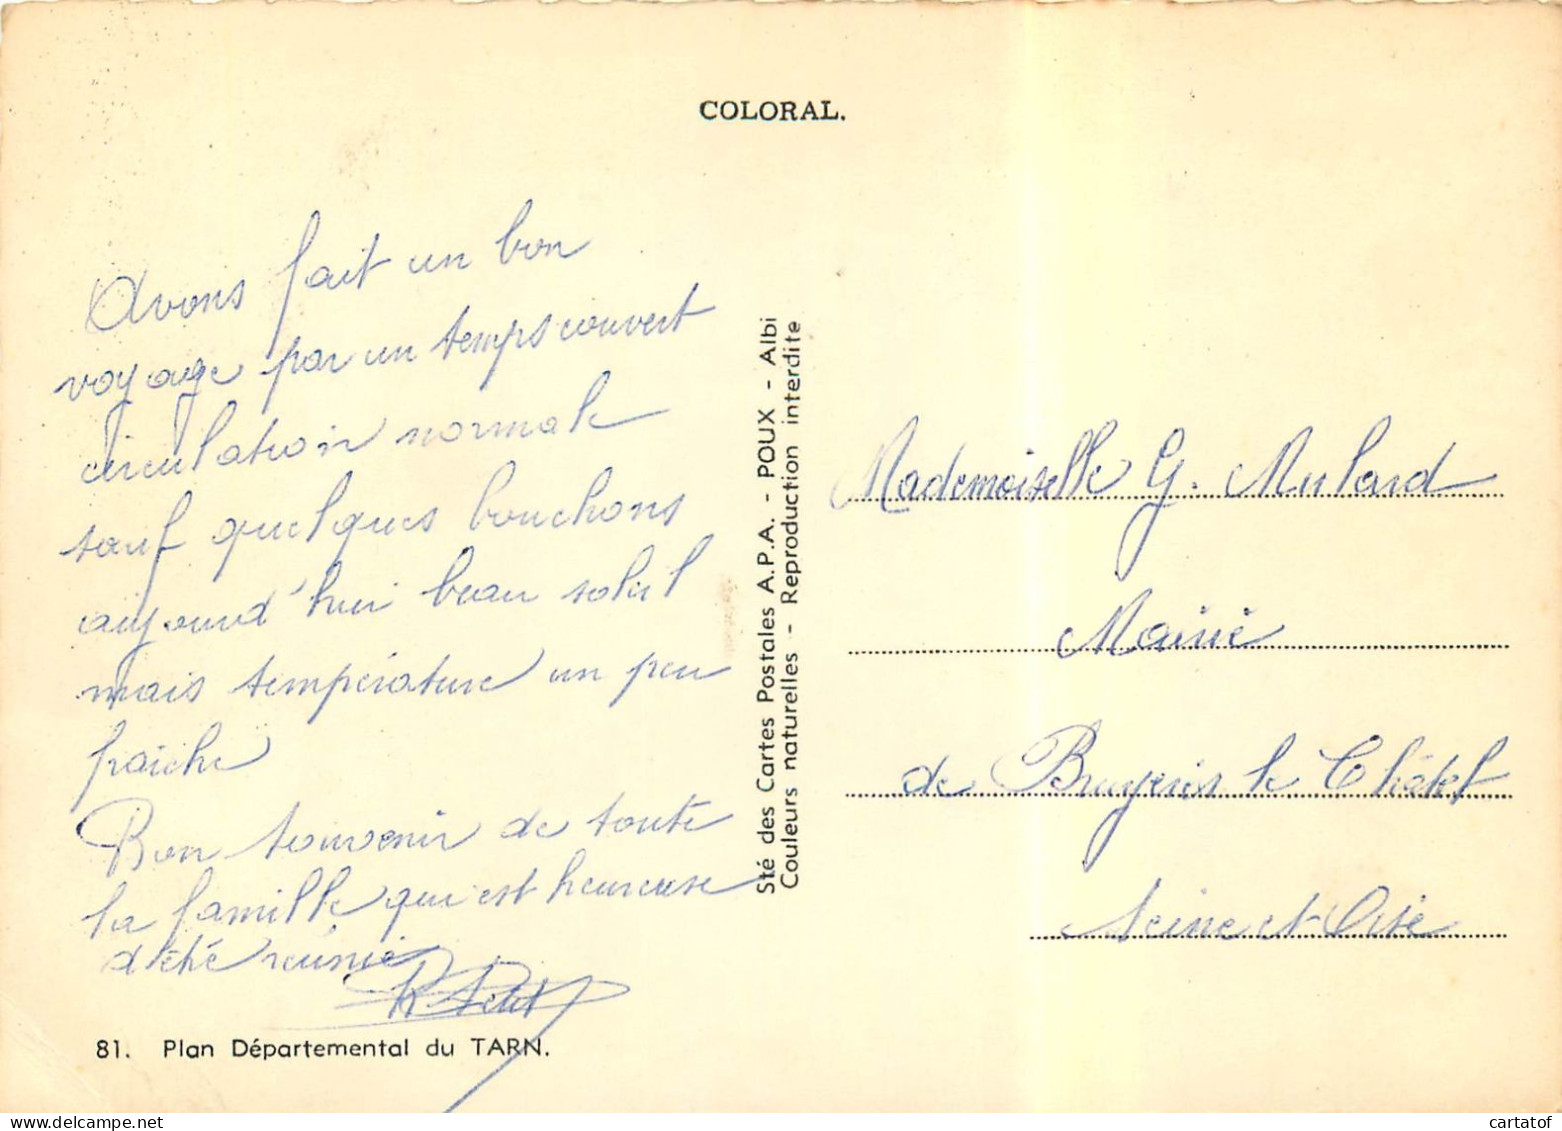 COLORAL.
Avons fait un bon
voyage par un temps couvert
circulation normale
sauf quelques bouchons
aujourd'hui beau soleil
mais température un peu
fraiche
Bon souvenir de toute
la famille qui est heureuse
d'être réunie
81. Plan Départemental du TARN.
Sté des Cartes Postales A.P.A. - POUX - Albi
Couleurs naturelles - Reproduction interdite
Mademoiselle G. Mulard
Mairie
de Bruyères le Châtel
Seine et Oise
cartatof